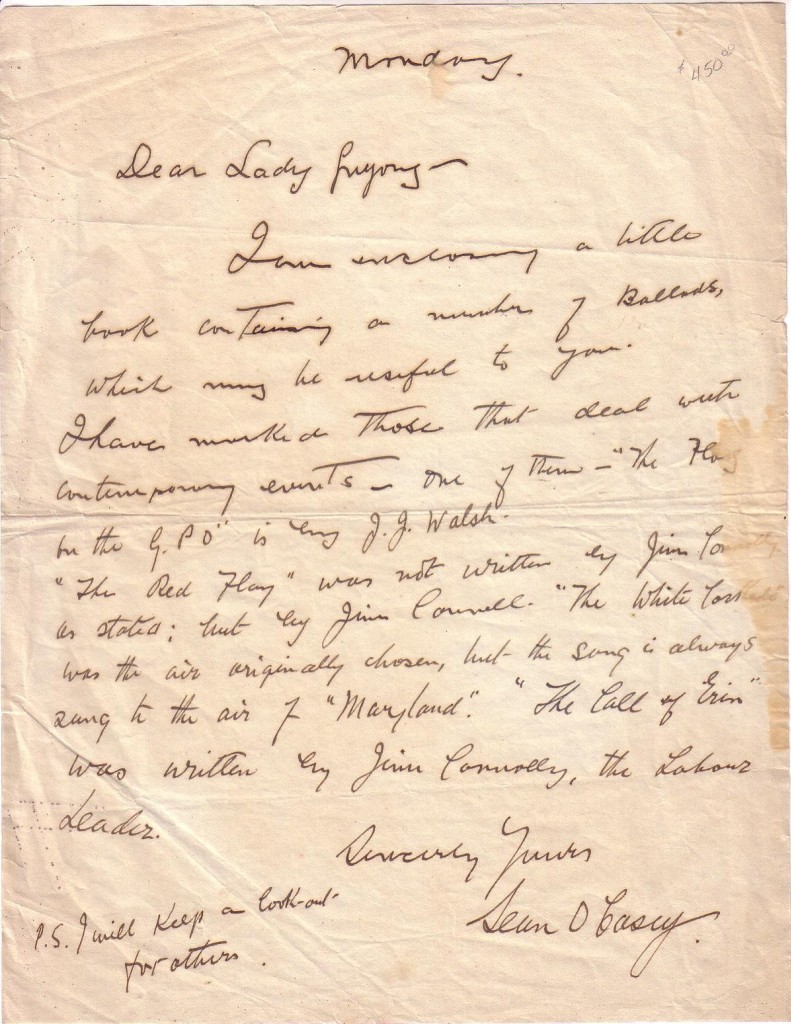 Monday.
$450.00
Dear Lady Gregory —
I am enclosing a little
book containing a number of Ballads,
which may be useful to you.
I have marked those that deal with
contemporary events — one of them — "The Flag
on the G.P O" is by J. J. Walsh.
"The Red Flag" was not written by Jim Connolly,
as stated; but by Jim Connell. "The White Cockade"
was the air originally chosen, but the song is always
sung to the air of "Maryland". "The Call of Erin"
was written by Jim Connolly, the Labour
Leader.
Sincerely Yours
Sean O Casey.
P.S. I will keep a look-out
for others.